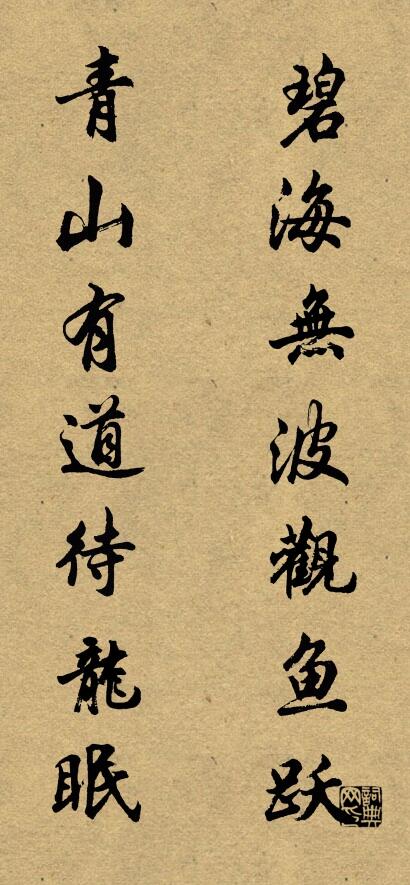 碧海無波觀鱼跃
青山有道待龍眠